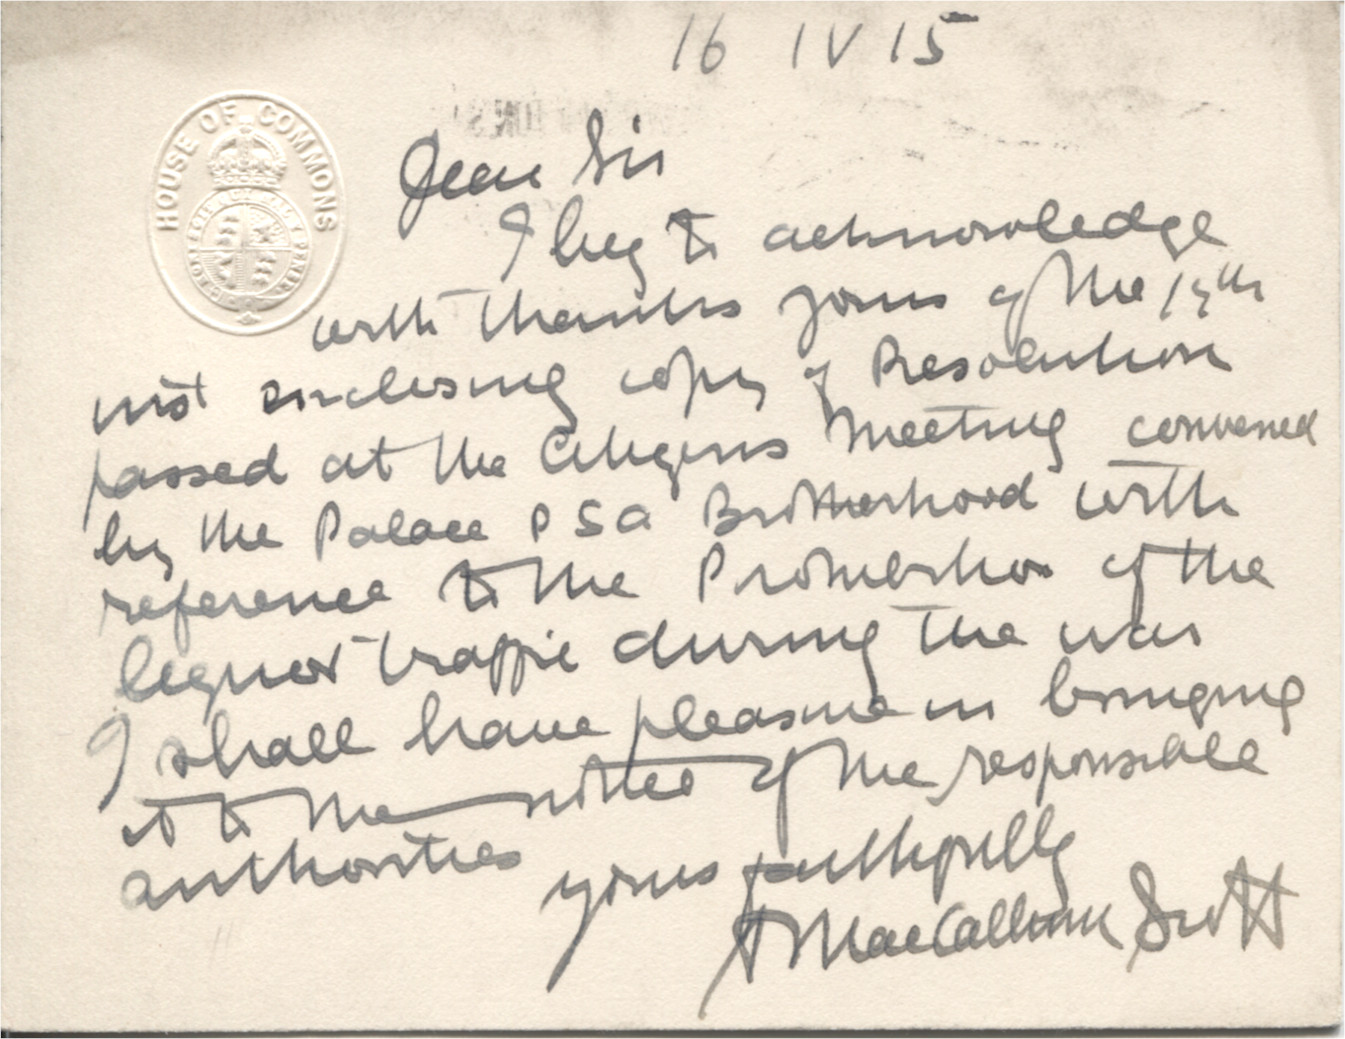 16 IV 15
HOUSE OF COMMONS
Dear Sir
I beg to acknowledge
with thanks yours of the 15th
inst enclosing copy of Resolution
passed at the Citizens Meeting convened
by the Palace P S A Brotherhood with
reference to the Prohibition of the
liquor traffic during the war
I shall have pleasure in bringing
it to the notice of the responsible
authorities
yours faithfully
A MacCallum Scott